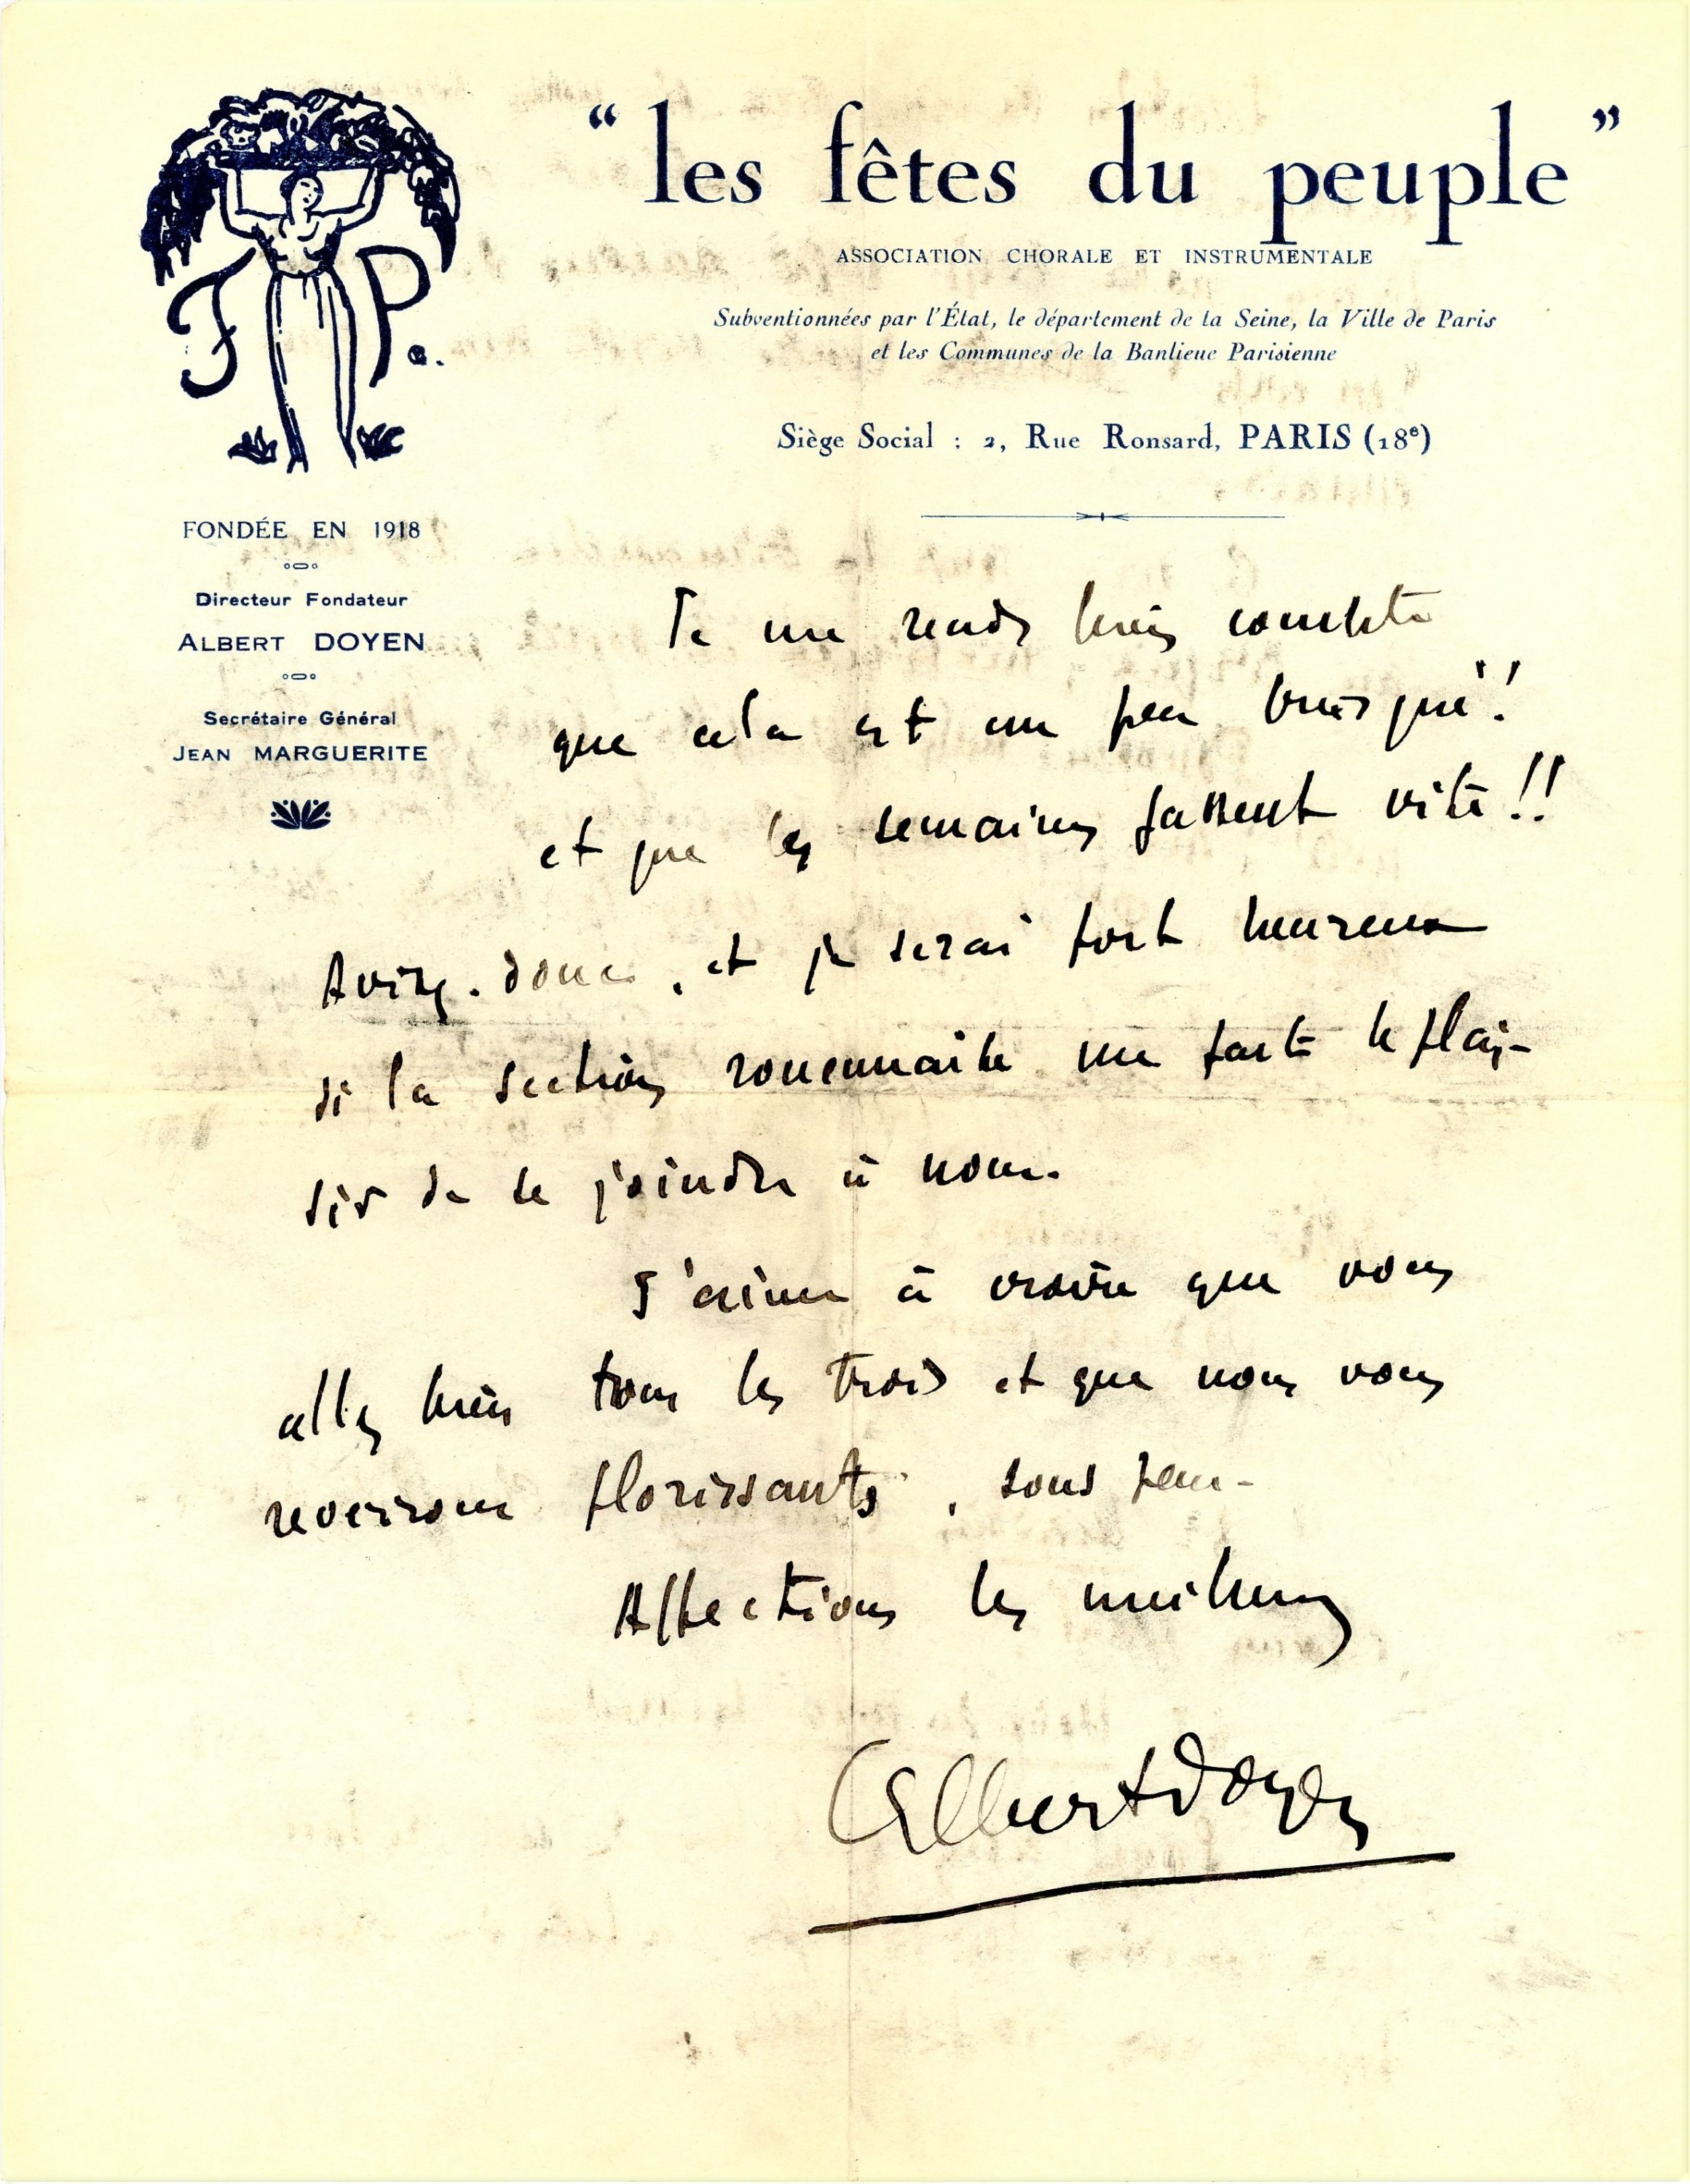 “ les fêtes du peuple ”
ASSOCIATION CHORALE ET INSTRUMENTALE
Subventionnées par l'État, le département de la Seine, la Ville de Paris
et les Communes de la Banlieue Parisienne
Siège Social : 2, Rue Ronsard, PARIS (18e)
F P.
FONDÉE EN 1918
Directeur Fondateur
ALBERT DOYEN
Secrétaire Général
JEAN MARGUERITE
Je me rends bien compte
que cela est un peu brusqué !
et que les semaines passent vite !!
Avisez-donc, et je serai fort heureux
si la section rouennaise me fait le plai-
sir de se joindre à nous.
J'aime à croire que vous
allez bien tous les trois et que nous vous
reverrons florissants, sous peu -
Affections les meilleures
Albert Doyen